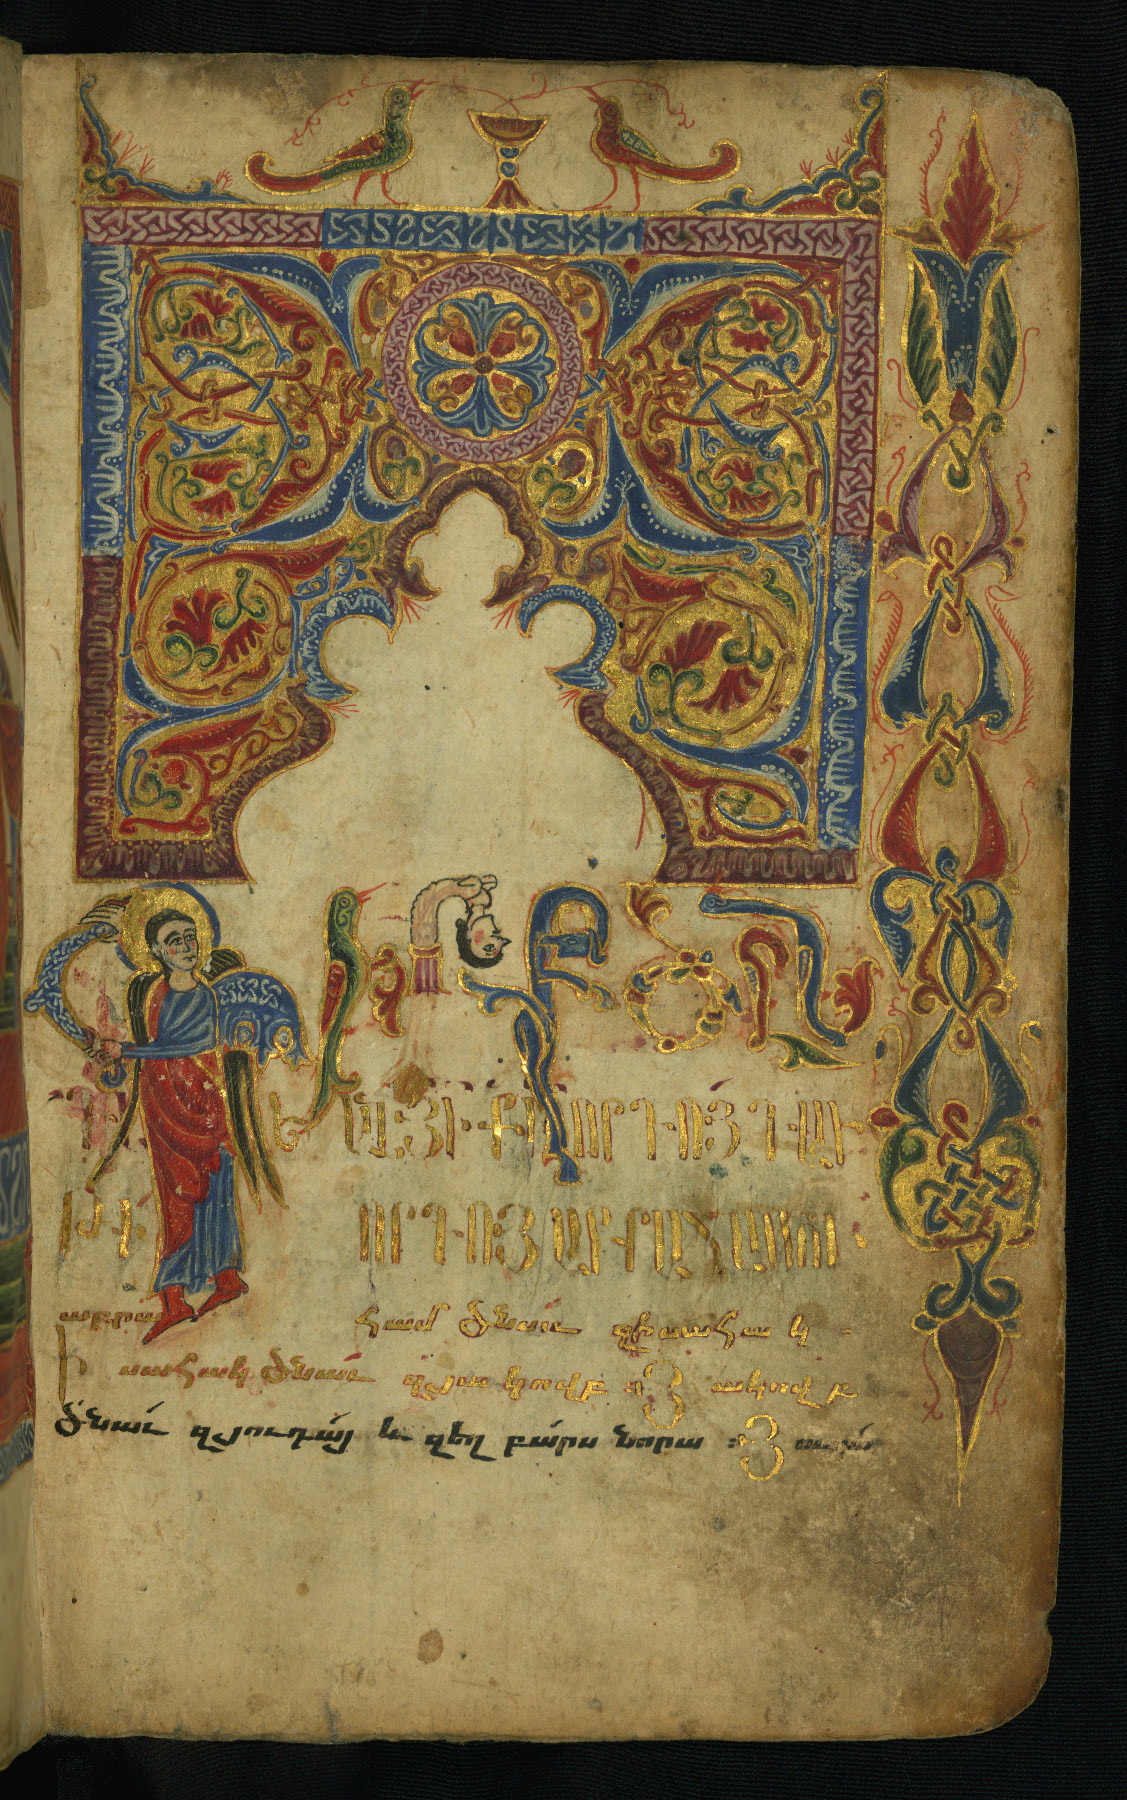 ԳԻՐՔ ԾՆ
ԴԵԱՆ ՅԻ ՔԻ ՈՐԴՈՅ ԴԱՒ
ԹԻ ՈՐԴՈՅ ԱԲՐԱՀԱՄՈՒ
աբրահամ ծնաւ զիսահակ
Իսահակ ծնաւ զյակովբ : Յակովբ
ծնաւ զյուդայ և զեղբարս նորա : Յուդա